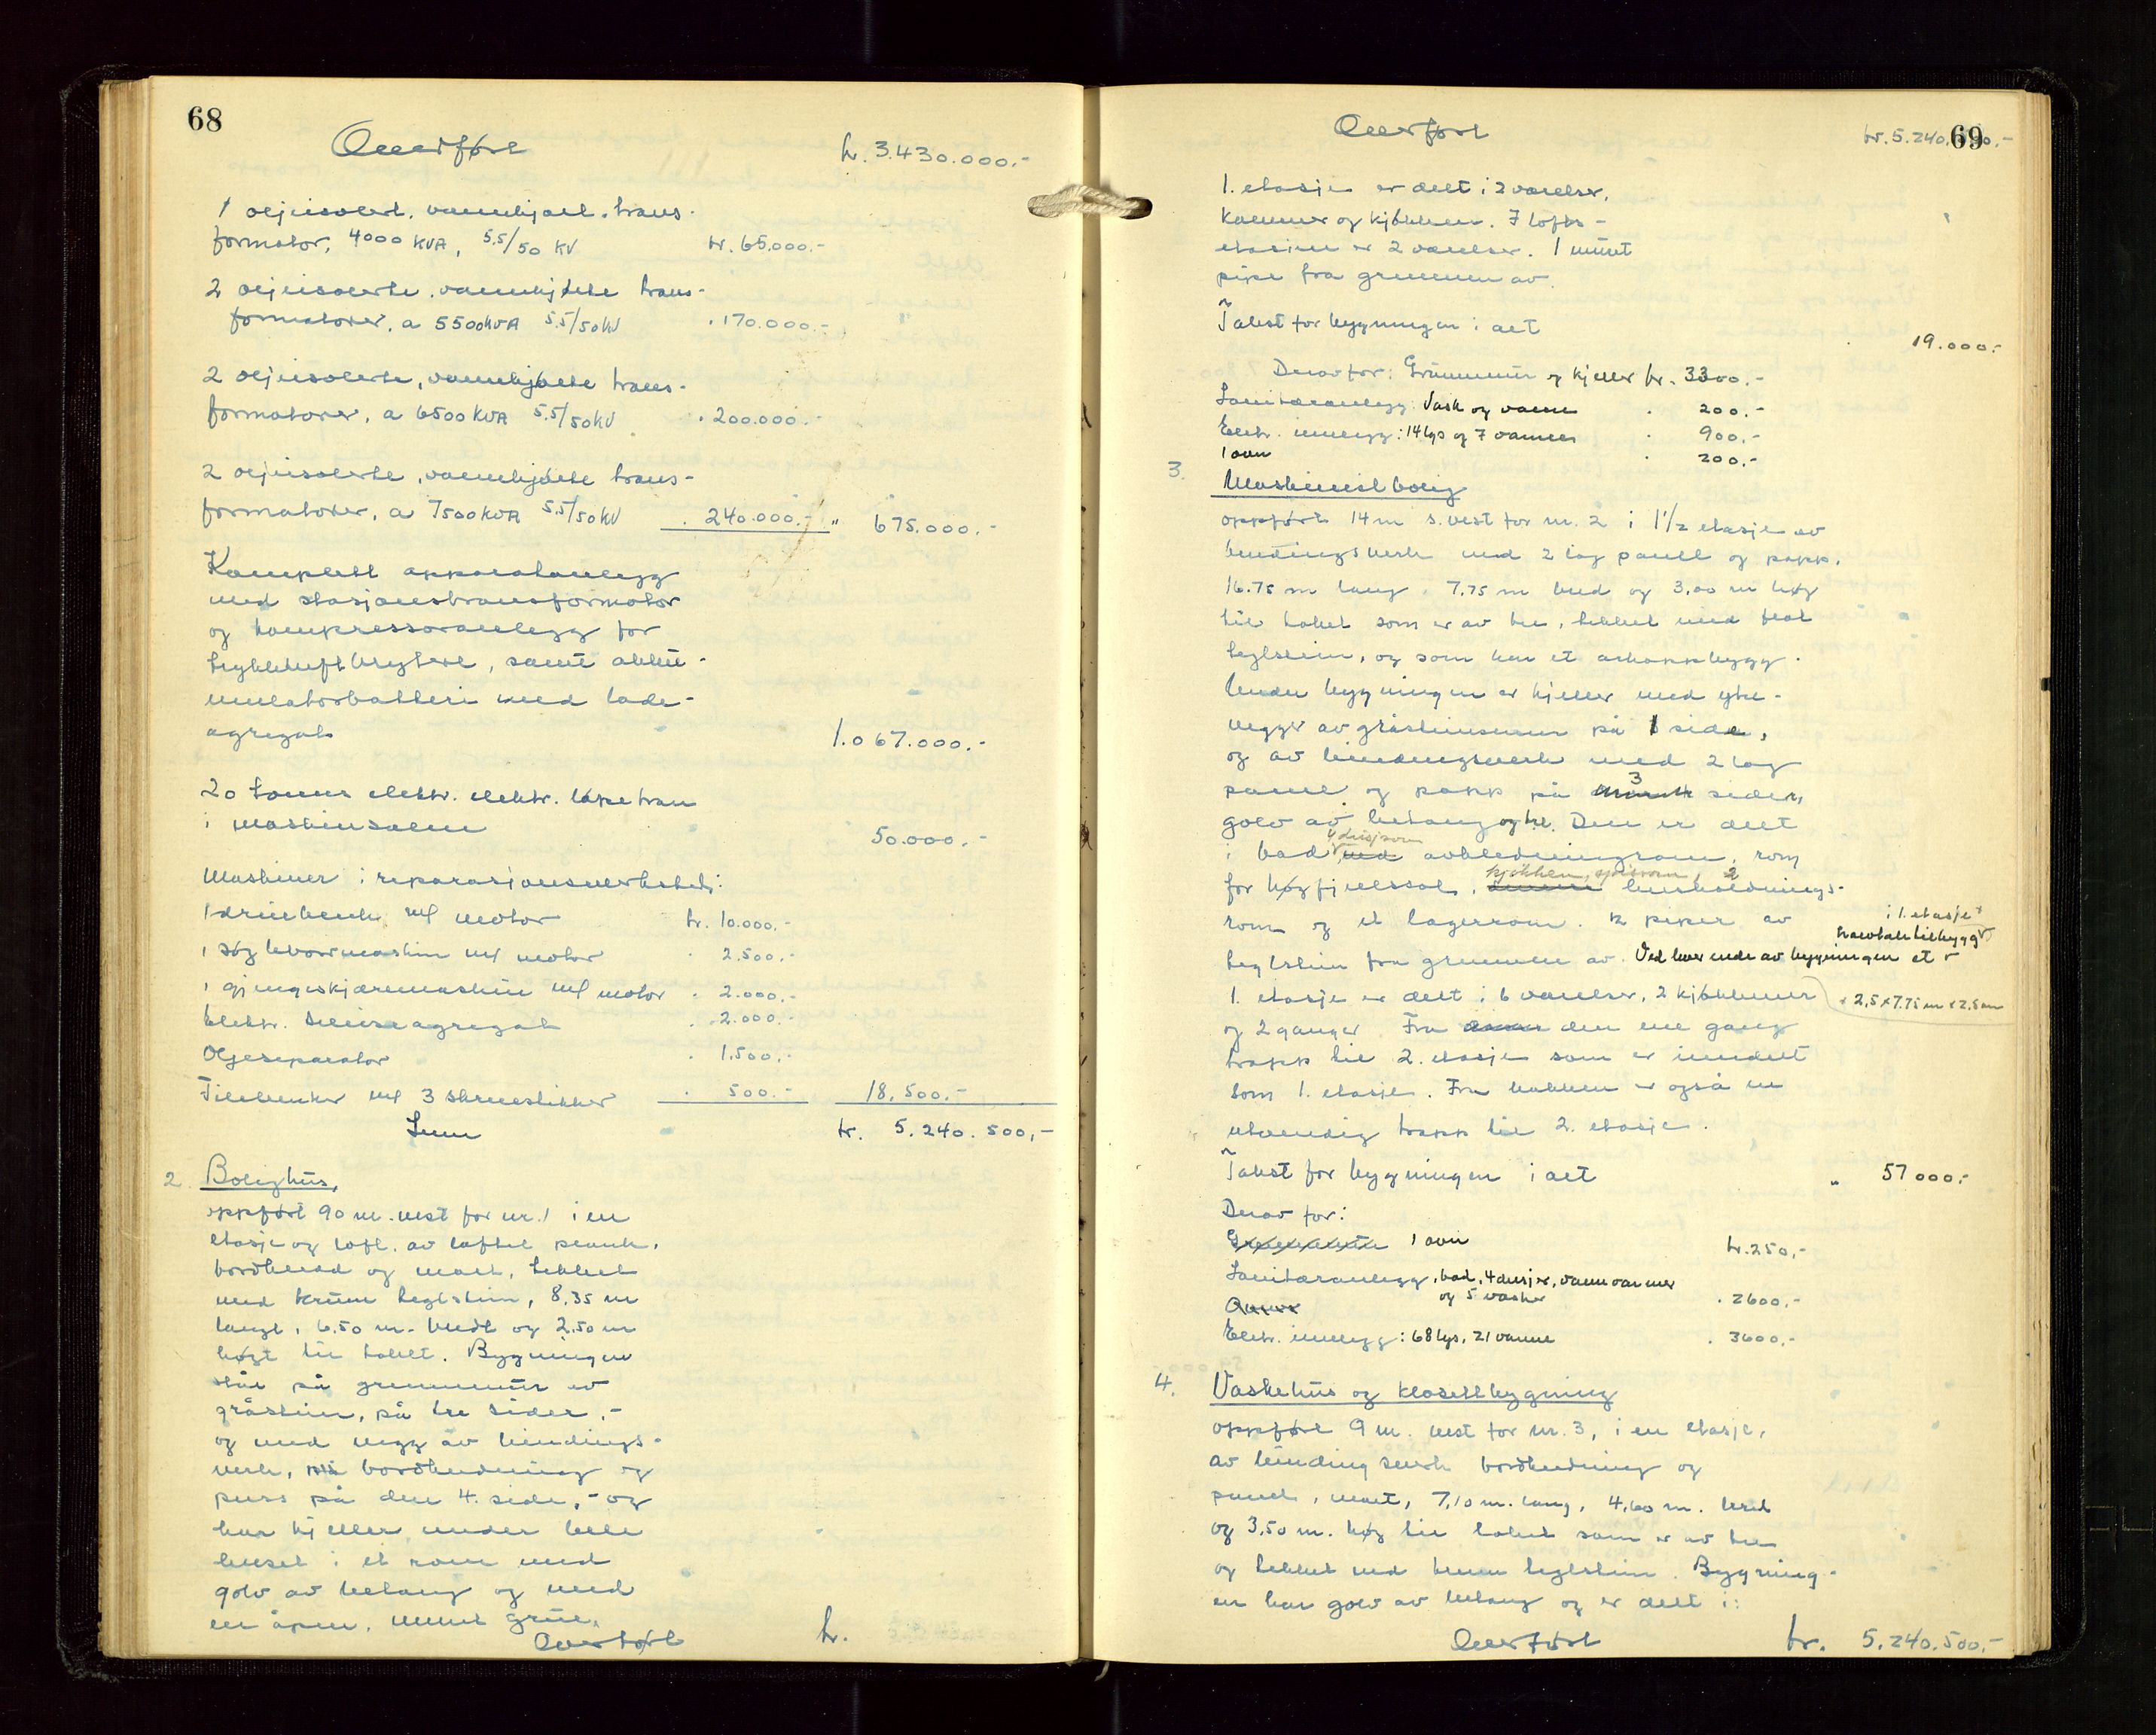 68
Overført
kr. 3.430.000.-
1 oljeisolert, vannkjølt, trans-
formator, 4000 KVA, 5.5/50 KV kr. 65.000.-
2 oljeisolerte, vannkjølte trans-
formatorer, a 5500 KVA 5.5/50 KV " 170.000.-
2 oljeisolerte, vannkjølte trans-
formatorer, a 6500 KVA 5.5/50 KV " 200.000.-
2 oljeisolerte, vannkjølte trans-
formatorer, a 7500 KVA 5.5/50 KV " 240.000.- " 675.000.-
Komplett apparatanlegg
med stasjonstransformator
og kompressoranlegg for
trykkluftbrytere, samt akku-
mulatorbatteri med lade-
agregat 1.067.000.-
20 tonns elektr. elektr. løpekran
i maskinsalen 50.000.-
Maskiner i reparasjonsverksted:
1 dreiebenk m/ motor kr. 10.000.-
1 søyleboremaskin m/ motor " 2.500.-
1 gjengeskjæremaskin m/ motor " 2.000.-
Elektr. sveiseagregat " 2.000.-
Oljeseparator " 1.500.-
Filebenker m/ 3 skruestikker " 500.- 18.500.-
Sum kr. 5.240.500,-
2. Bolighus,
oppført 90 m. vest for nr. 1 i en
etasje og loft, av laftet plank,
bordkledd og malt, tekket
med krum teglstein, 8.35 m
langt, 6.50 m. bredt og 2.50 m
høgt til taket. Bygningen
står på grunnmur av
gråstein, på tre sider, -
og med vegg av bindings-
verk, bordkledning og
puss på den 4. side, - og
har kjeller under hele
huset i et rom med
golv av betong og med
en åpen, muret grue.
Overført kr.
69
Overført kr. 5.240.500.-
1. etasje er delt i 2 værelser,
kammer og kjøkken. I lofts-
etasjen er 2 værelser. 1 muret
pipe fra grunnen av.
Takst for bygningen i alt
19.000.-
Derav for: Grunnmur og kjeller kr. 3300.-
Sanitæranlegg: Vask og vann " 200.-
Elektr. innlegg: 14 lys og 7 varmer " 900.-
1 ovn " 200.-
3. Maskinistbolig
oppført 14 m s.vest for nr. 2 i 1 1/2 etasje av
bindingsverk med 2 lag panel og papp.
16.75 m lang, 7.75 m bred og 3.00 m høg
til taket som er av tre, tekket med flat
teglstein, og som har et arkoppbygg.
Under bygningen er kjeller med ytre-
vegger av gråsteinsmur på 1 side,
og av bindingsverk med 2 lag
panel og papp på 3 sider,
golv av betong og tre. Den er delt
i bad, 4 dusjrom avkledningsrom, rom
for høgfjellssol, kjøkken, spiserom, 2 husholdnings-
rom og et lagerrom. 2 piper av
teglstein fra grunnen av. Ved hver ende av bygningen et i 1. etasje
tilbygg
2,5 x 7.75 m x 2,5 m
1. etasje er delt i 6 værelser, 2 kjøkkener
og 2 ganger. Fra den ene gang
trapp til 2. etasje som er inndelt
som 1. etasje. Fra bakken er også en
utvendig trapp til 2. etasje.
Takst for bygningen i alt " 57 000.-
Derav for:
1 ovn kr. 250,-
Sanitæranlegg, bad, 4 dusjer, vannvarmer
og 5 vasker " 2600.-
Elektr. innlegg: 68 lys, 21 varme " 3600.-
4. Vaskehus og klosettbygning
oppført 9 m. vest for nr. 3, i en etasje,
av bindingsverk bordkledning og
panel, malt, 7,10 m. lang, 4,60 m. bred
og 3.50 m. høg til taket som er av tre
og tekket med krum teglstein. Bygning-
en har golv av betong og er delt i:
Overført kr. 5.240.500.-